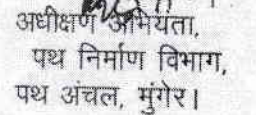 अधीक्षण अभियंता,
पथ निर्माण विभाग,
पथ अंचल, मुंगेर।